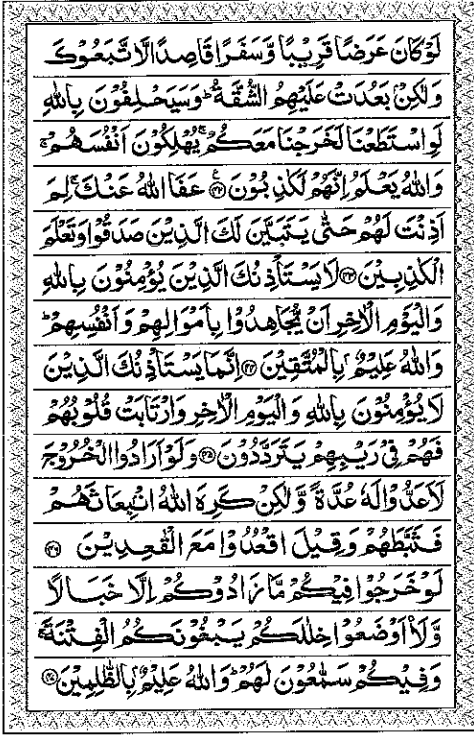 لَوْ كَانَ عَرَضًا قَرِيْبًا وَّسَفَرًا قَاصِدًا لَّاتَّبَعُوْكَ
وَلٰكِنْۢ بَعُدَتْ عَلَيْهِمُ الشُّقَّةُ ؕ وَسَيَحْلِفُوْنَ بِاللّٰهِ
لَوِ اسْتَطَعْنَا لَخَرَجْنَا مَعَكُمْ ۚ يُهْلِكُوْنَ اَنْفُسَهُمْ ۚ
وَاللّٰهُ يَعْلَمُ اِنَّهُمْ لَكٰذِبُوْنَ ﴿۴۲﴾ عَفَا اللّٰهُ عَنْكَ ۚ لِمَ
اَذِنْتَ لَهُمْ حَتّٰى يَتَبَيَّنَ لَكَ الَّذِيْنَ صَدَقُوْا وَتَعْلَمَ
الْكٰذِبِيْنَ ﴿۴۳﴾ لَا يَسْتَاْذِنُكَ الَّذِيْنَ يُؤْمِنُوْنَ بِاللّٰهِ
وَالْيَوْمِ الْاٰخِرِ اَنْ يُّجَاهِدُوْا بِاَمْوَالِهِمْ وَاَنْفُسِهِمْ ؕ
وَاللّٰهُ عَلِيْمٌۢ بِالْمُتَّقِيْنَ ﴿۴۴﴾ اِنَّمَا يَسْتَاْذِنُكَ الَّذِيْنَ
لَا يُؤْمِنُوْنَ بِاللّٰهِ وَالْيَوْمِ الْاٰخِرِ وَارْتَابَتْ قُلُوْبُهُمْ
فَهُمْ فِيْ رَيْبِهِمْ يَتَرَدَّدُوْنَ ﴿۴۵﴾ وَلَوْ اَرَادُوا الْخُرُوْجَ
لَاَعَدُّوْا لَهٗ عُدَّةً وَّلٰكِنْ كَرِهَ اللّٰهُ انْۢبِعَاثَهُمْ
فَثَبَّطَهُمْ وَقِيْلَ اقْعُدُوْا مَعَ الْقٰعِدِيْنَ ﴿۴۶﴾
لَوْ خَرَجُوْا فِيْكُمْ مَّا زَادُوْكُمْ اِلَّا خَبَالًا
وَّلَا۠اَوْضَعُوْا خِلٰلَكُمْ يَبْغُوْنَكُمُ الْفِتْنَةَ ۚ
وَفِيْكُمْ سَمّٰعُوْنَ لَهُمْ ؕ وَاللّٰهُ عَلِيْمٌۢ بِالظّٰلِمِيْنَ ﴿۴۷﴾